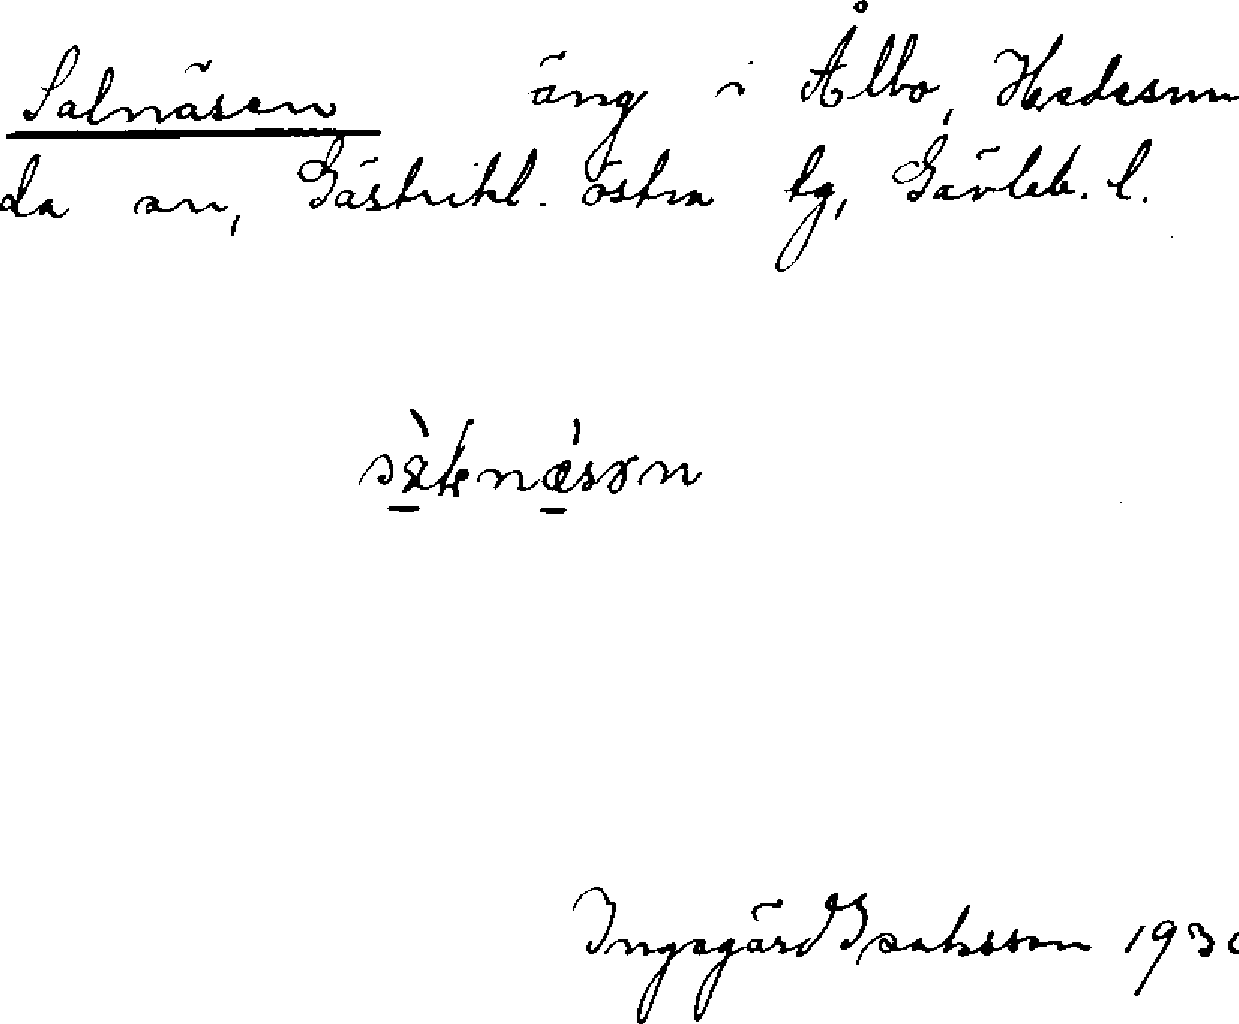 Salnäsen äng i Ålbo, Hedesun
da sn, Gästrikl. östra tg, Gävleb. l.
Ingegärd Isaksson